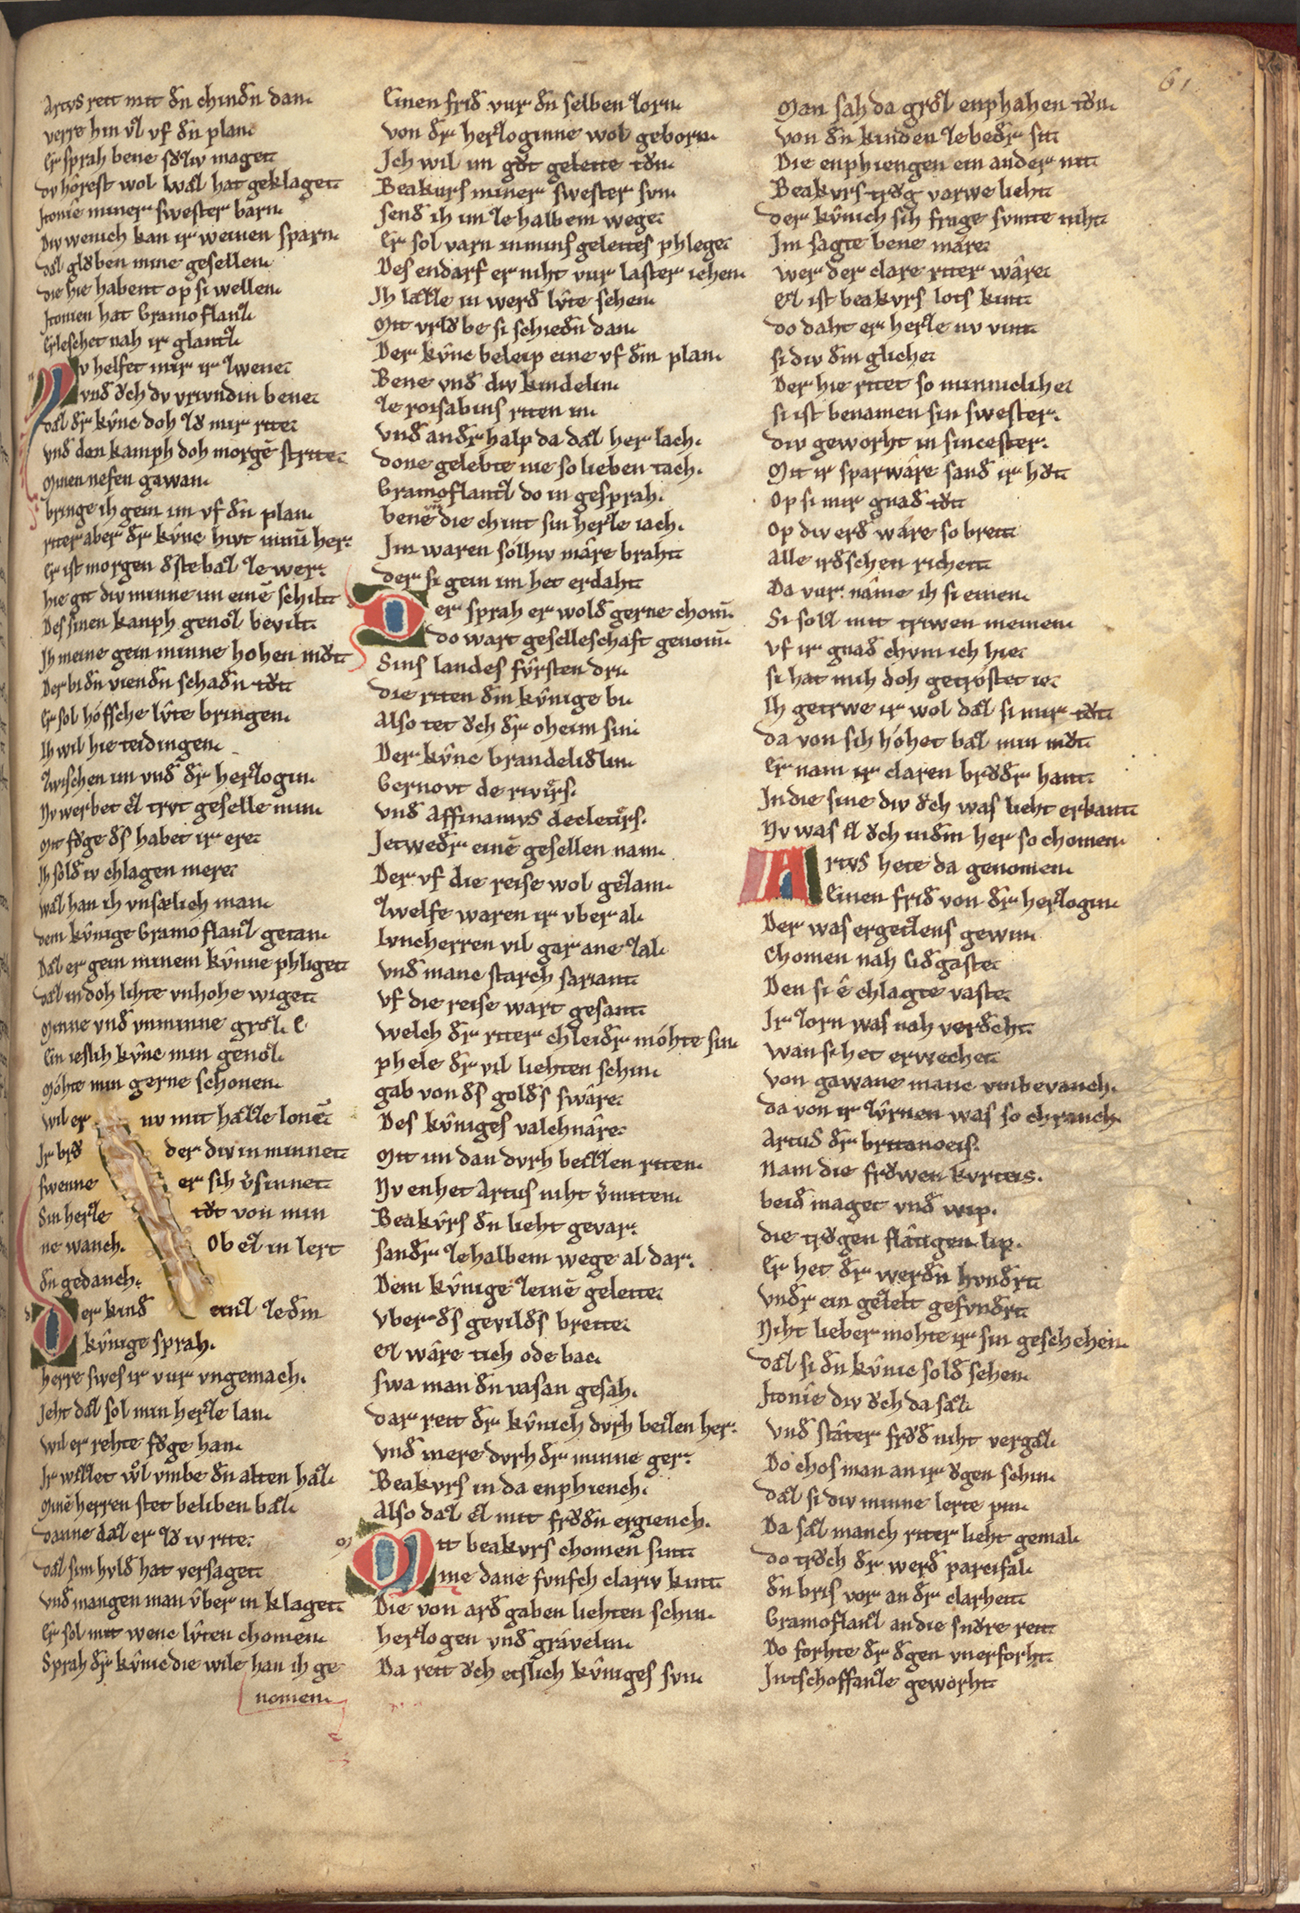 61
Artvs reit mit dn chindn dan.
verre hin vz vf dn plan.
Er sprah bene svziv maget.
dv hôrest wol waz hat geklaget.
Itonie miner swester barn.
Div wenich kan ir weinen sparn.
daz glǒben mine gesellen.
die hie habent op si wellen.
Itonien hat Gramoflanz.
Erleschet nah ir glantz.
Nv helfet mir ir zwene.
vnd ǒch dv vrivndin bene.
daz dr kv̂nc doh zv̊ mir rite.
vnd den kamph doh morgē strite.
Minen nefen gawan.
bringe ih gein im vf dn plan.
riter aber dr kv̂nc hivt innū her.
Er ist morgen dste baz ze wer.
hie git div minne im einē schilt.
Des sinen kanph genoz bevilt.
Ih meine gein minne hohen mv̊t.
Der bi dn viendn schadn tv̊t.
Er sol hôfsche lv̂te bringen.
Ih wil hie teidingen.
zwischen im vnd dr herzogin.
Nv werbet ez trvt geselle min.
Mit fv̊ge ds habet ir ere.
Ih sold iv chlagen mere.
waz han ih vnsælich man.
dem kv̂nige Gramoflanz getan.
Daz er gein minem kv̂nne phliget.
daz in doh lihte vnhohe wiget.
Minne vnd vnminne groz.
Ein ieslih kv̂nc min genoz.
Môhte min gerne schonen.
wil er nv mit hazze lonē.
Ir brv̊der div in minnet.
swenne er sih v̄sinnet.
Sin herze tv̊t von min
ne wanch. Ob ez in lert
dn gedanch.
Der kind einz ze dm
kv̂nige sprah.
herre swes ir vur vngemach.
Jeht daz sol min herze lan.
wil er rehte fv̊ge han.
Ir wizzet wol vmbe dn alten haz.
Minē herren stet beliben baz.
danne daz er zv̊ iv rite.
daz sim hvld hat versaget.
vnd mangen man v̂ber in klaget.
Er sol mit wenc lv̂ten chomen.
Sprah dr kv̂nic die wile han ih ge
nomen.
Einen frid vur dn selben zorn.
von dr herzoginne wol geborn.
Ich wil im gv̊t geleite tv̊n.
Beakurs miner swester svn.
send ih im ze halbem wege.
Er sol varn in mins geleites phlege.
Des endarf er niht vur laster iehen.
Ih lazze in werd lv̂te sehen.
Mit vrlǒbe si schiedn dan.
Der kv̂nc beleip eine vf dm plan.
Bene vnd div kindelin.
ze roisabins riten in.
vnd andrhalp da daz her lach.
done gelebte nie so lieben tach.
Gramoflantz do in gesprah.
benē die chint sin herze iach.
Im waren solhiv mâre braht.
der si gein im het erdaht.
Der sprah er wold gerne chom̄.
do wart geselleschaft genom̄.
Sins landes fv̂rsten dri.
die riten dm kv̂nige bi.
Also tet ǒch dr oheim sin.
Der kv̂nc brandelidlin.
Gernovt de rivi̊rs.
vnd Affinamvs declet̊rs.
Jetwedr einē gesellen nam.
Der vf die reise wol gezam.
zwelfe waren ir vber al.
Ivncherren vil gar ane zal.
vnd manc starch sariant.
vf die reise wart gesant.
welch dr riter chleidr môhte sin.
phele dr vil liehten schin.
gab von ds golds swâre.
Des kv̂niges valchnâre.
Mit im dan dvrh beizzen riten.
Nv enhet Artus niht v̄miten.
Beakv̂rs dn lieht gevar.
sandr ze halbem wege al dar.
Dem kv̂nige zeinē geleite.
vber ds gevilds breite.
ez wâre tich ode bac.
swa man dn vasan gesah.
dar reit dr kv̂nich dvrh beizen her.
vnd mere dvrh dr minne ger.
Beakvrs in da enphiench.
Also daz ez mit frǒdn ergiench.
Mit beakvrs chomen sint.
ime dane fvnfch clariv kint.
Die von ard gaben liehten schin.
herzogen vnd grâvelin.
Da reit ǒch etslich kv̂niges svn.
Man sah da groz enphahen tv̊n.
von dn kinden ze bedr sit.
Die enphiengen ein ander nit.
Beakvrs trv̊g varwe lieht.
der kv̂nich sih frage svmte niht.
Im sagte bene mâre.
wer der clare riter wâre.
ez ist beakvrs lots kint.
do daht er herze nv vint.
si div dm gliche.
Der hie ritet so minniclihe.
si ist benamen sin swester.
div geworht in sincester.
Mit ir sparwâre sand ir hv̊t.
Op si mir gnad tv̊t.
Op div erd wâre so breit.
Alle irdschen richeit.
Da vur. nâme ih si einen.
Si soll mit triwen meinen.
vf ir gnad chvm ich hie.
si hat mih doh getrv̊stet ie.
Ih getrwe ir wol daz si mir tv̊t.
da von sih hôhet baz min mv̊t.
Er nam ir claren brv̊dr hant.
In die sine div ǒch was lieht erkant.
Nv was ez ǒch indm her so chomen.
Artvs hete da genomen.
Einen frid von dr herzogin.
Der was ergetzens gewin.
chomen nah Gidgaste.
Den si ê chlagte vaste.
Ir zorn was nah verdeht.
wan si het erwechet.
von gawane manc vmbevanch.
da von ir zv̂rnen was so chranch.
Artus dr brittanoeis.
Nam die frǒwen kvrteis.
beid maget vnd wip.
die trv̊gen flâtigen lip.
Er het dr werdn hvndrt.
vndr ein gezelt gesvndrt.
Niht lieber mohte ir sin geschehen.
daz si dn kv̂nic sold sehen.
Itonîe div ǒch da saz.
vnd stâter frǒd niht vergaz.
Do chos man an ir ǒgen schin.
daz si div minne lerte pin.
Da saz manch riter lieht gemal.
do trv̊ch dr werd parcifal.
dn bris vor an dr clarheit.
Gramoflanz an die snv̊re reit.
Do forhte dr ǒgen vnerforht.
In tschoffanze geworht.